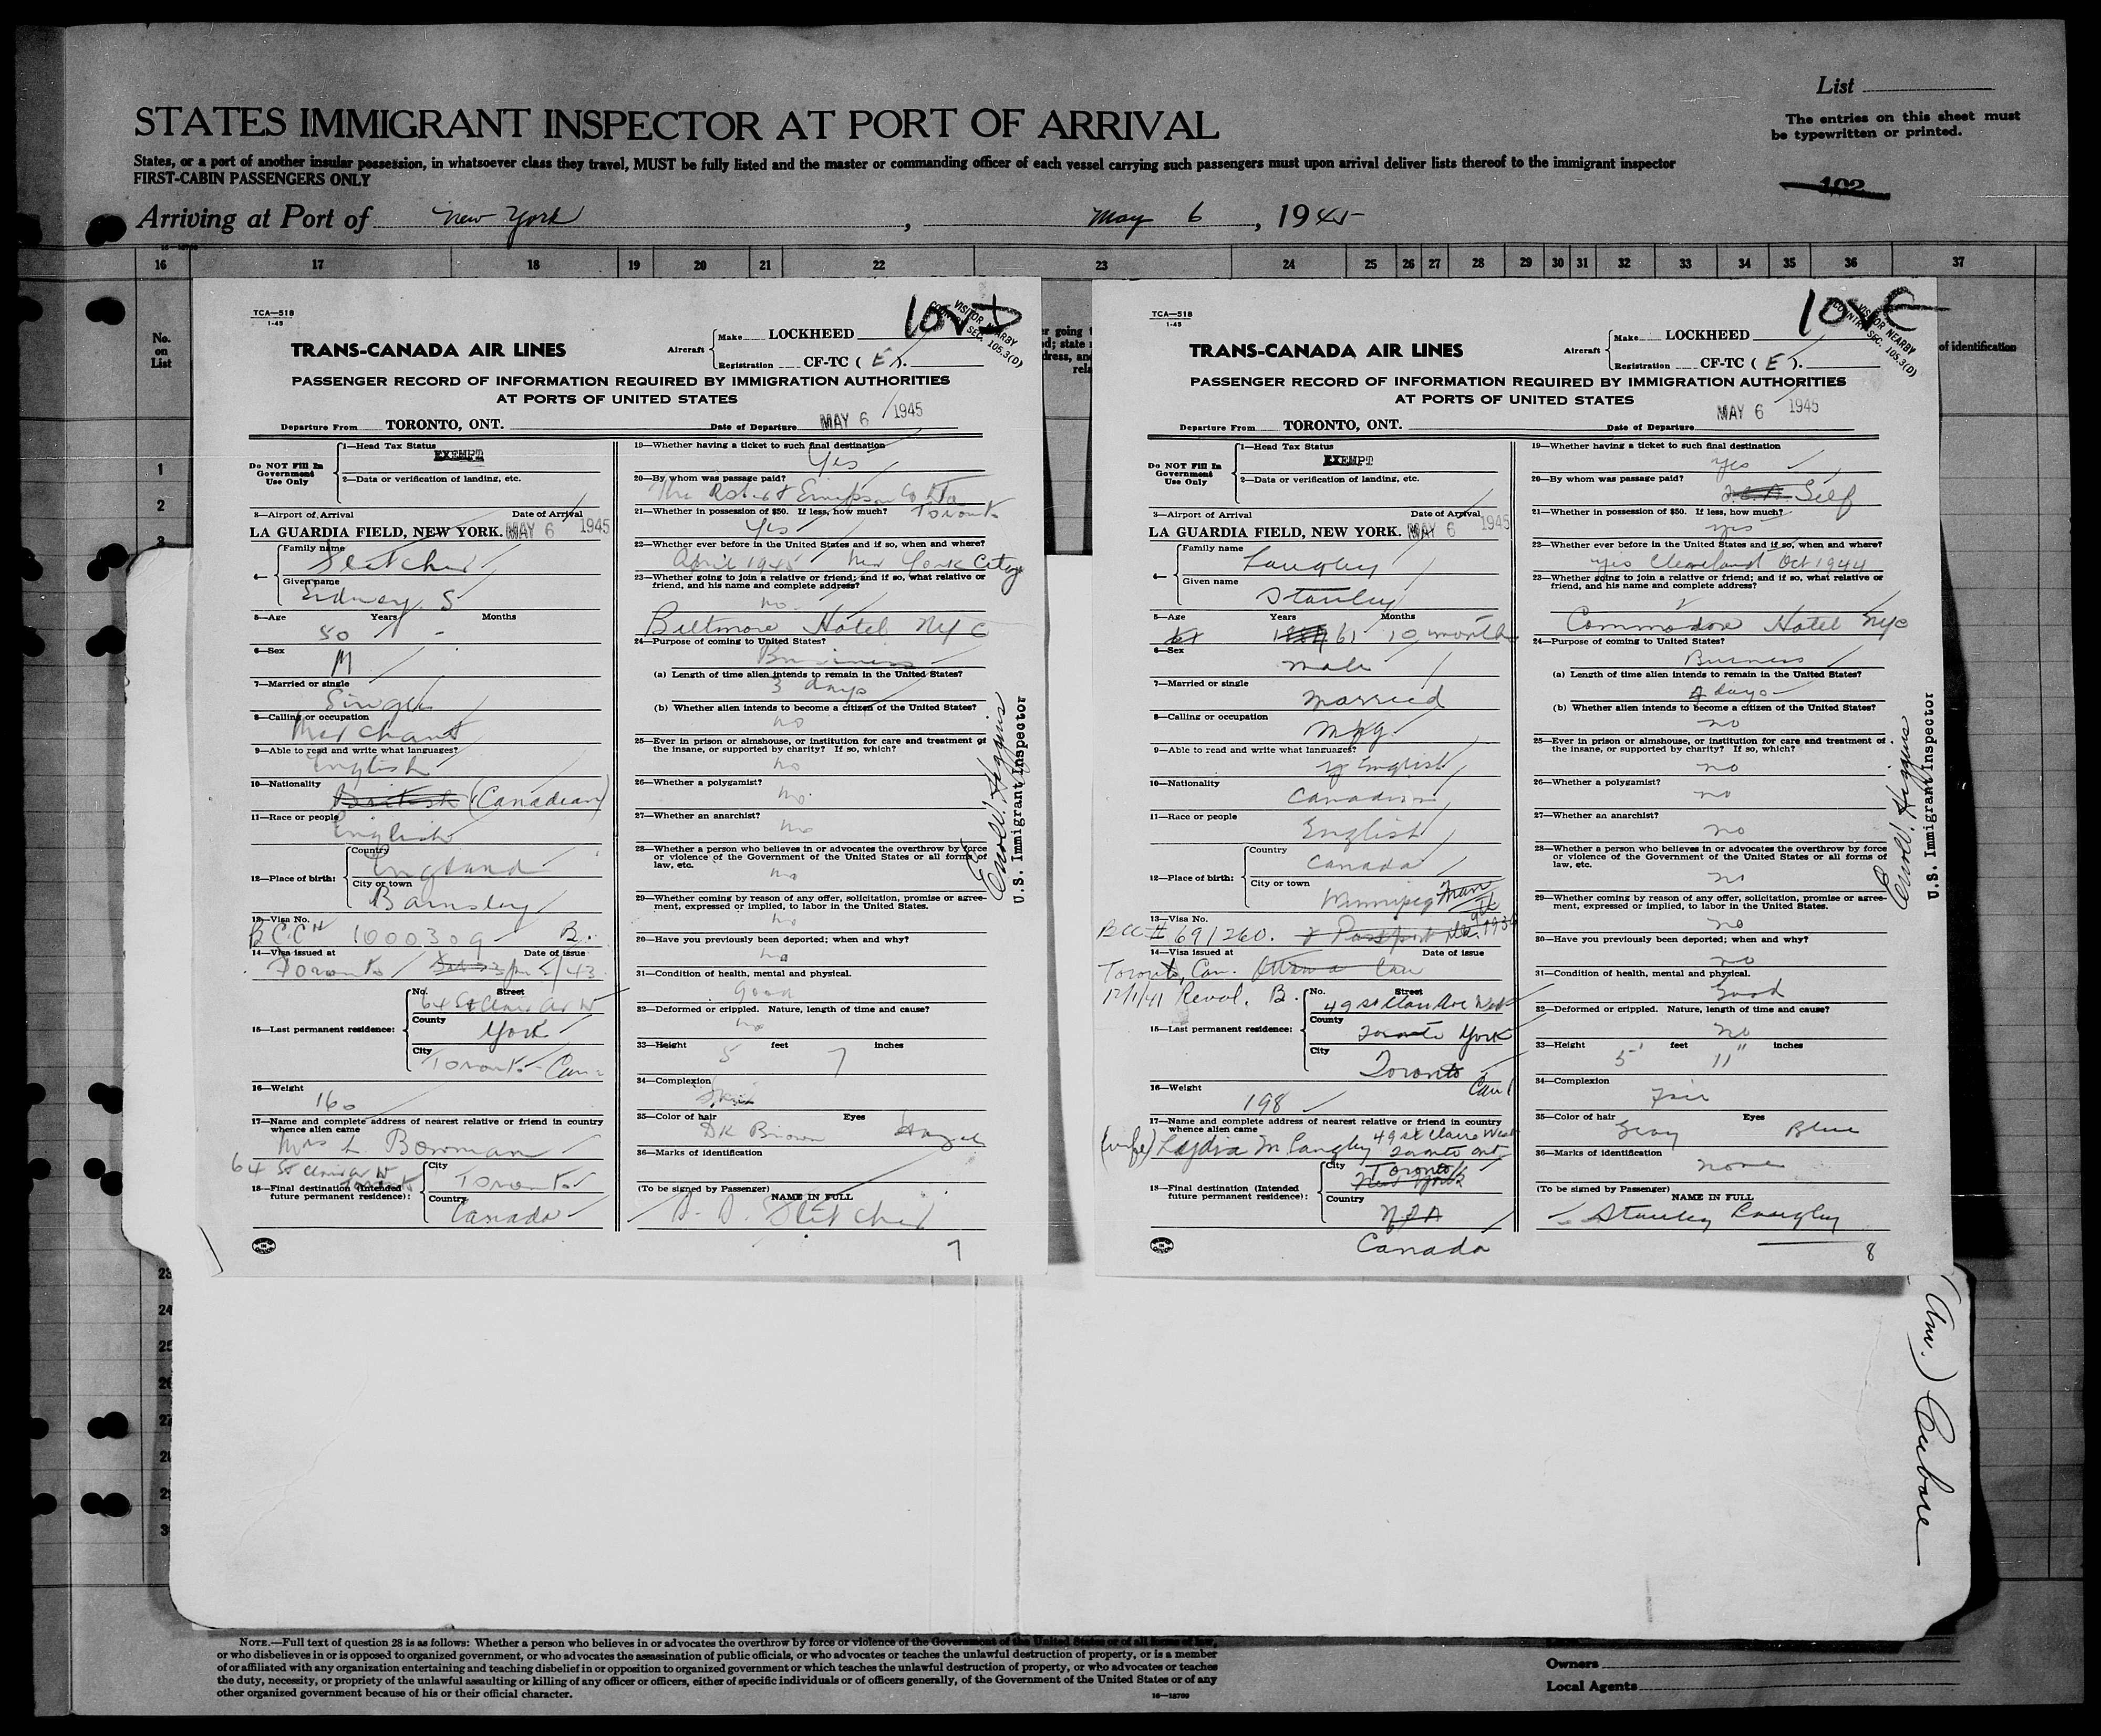 List
STATES IMMIGRANT INSPECTOR AT PORT OF ARRIVAL
The entries on this sheet must
be typewritten or printed.
States, or a port of another insular possession, in whatsoever class they travel, MUST be fully listed and the master or commanding officer of each vessel carrying such passengers must upon arrival deliver lists thereof to the immigrant inspector
FIRST-CABIN PASSENGERS ONLY
102
Arriving at Port of New York, May 6, 1945
16 17 18 19 20 21 22 23 24 25 26 27 28 29 30 31 32 33 34 35 36 37
No.
on
List
of identification
1
2
3
TCA—518
1-45
VISITOR NEARBY
COUNTRY SEC. 105.3(D)
Make LOCKHEED
TRANS-CANADA AIR LINES
Aircraft
Registration CF-TC ( E ).
PASSENGER RECORD OF INFORMATION REQUIRED BY IMMIGRATION AUTHORITIES
AT PORTS OF UNITED STATES
Departure From TORONTO, ONT. Date of Departure MAY 6 1945
Do NOT Fill In
Government
Use Only
1—Head Tax Status
EXEMPT
2—Data or verification of landing, etc.
3—Airport of Arrival Date of Arrival
LA GUARDIA FIELD, NEW YORK. MAY 6 1945
4—
Family name
Fletcher
Given name
Sidney S
5—Age Years Months
50 -
6—Sex
M
7—Married or single
Single
8—Calling or occupation
Merchant
9—Able to read and write what languages?
English
10—Nationality
British (Canadian)
11—Race or people
English
12—Place of birth:
Country
England
City or town
Barnsley
13—Visa No.
BCC# 1000309 B.
14—Visa issued at Date of issue
Toronto /43
15—Last permanent residence:
No. Street
64 St Clair Av W
County
York
City
Toronto - Can
16—Weight
160
17—Name and complete address of nearest relative or friend in country
whence alien came
Mrs L. Bowman
64 St Clair Av W
Toronto
18—Final destination (Intended
future permanent residence):
City
Toronto
Country
Canada
19—Whether having a ticket to such final destination
Yes
20—By whom was passage paid?
The Robert Simpson Co Ltd
Toronto
21—Whether in possession of $50. If less, how much?
Yes
22—Whether ever before in the United States and if so, when and where?
April 1945 New York City
23—Whether going to join a relative or friend; and if so, what relative or
friend, and his name and complete address?
no
Biltmore Hotel NYC
24—Purpose of coming to United States?
Business
(a) Length of time alien intends to remain in the United States?
3 days
(b) Whether alien intends to become a citizen of the United States?
no
25—Ever in prison or almshouse, or institution for care and treatment of
the insane, or supported by charity? If so, which?
no
26—Whether a polygamist?
no
27—Whether an anarchist?
no
28—Whether a person who believes in or advocates the overthrow by force
or violence of the Government of the United States or all forms of
law, etc.
no
29—Whether coming by reason of any offer, solicitation, promise or agree-
ment, expressed or implied, to labor in the United States.
no
30—Have you previously been deported; when and why?
no
31—Condition of health, mental and physical.
good
32—Deformed or crippled. Nature, length of time and cause?
no
33—Height 5 feet 7 inches
34—Complexion
35—Color of hair Eyes
DK Brown Hazel
36—Marks of identification
(To be signed by Passenger) NAME IN FULL
S. S. Fletcher
7
U.S. Immigrant Inspector
TCA—518
1-45
VISITOR NEARBY
COUNTRY SEC. 105.3(D)
Make LOCKHEED
TRANS-CANADA AIR LINES
Aircraft
Registration CF-TC ( E ).
PASSENGER RECORD OF INFORMATION REQUIRED BY IMMIGRATION AUTHORITIES
AT PORTS OF UNITED STATES
Departure From TORONTO, ONT. Date of Departure MAY 6 1945
Do NOT Fill In
Government
Use Only
1—Head Tax Status
EXEMPT
2—Data or verification of landing, etc.
3—Airport of Arrival Date of Arrival
LA GUARDIA FIELD, NEW YORK. MAY 6 1945
4—
Family name
Langley
Given name
Stanley
5—Age Years Months
61 10 months
6—Sex
male
7—Married or single
Married
8—Calling or occupation
Mfg.
9—Able to read and write what languages?
English
10—Nationality
Canadian
11—Race or people
English
12—Place of birth:
Country
Canada
City or town
Winnipeg Man
13—Visa No.
BCC# 691260. Passport
14—Visa issued at Date of issue
Toronto, Can. Ottawa Can
12/1/41 Reval. B.
15—Last permanent residence:
No. Street
49 St Clair Ave West
County
Toronto York
City
Toronto
Can
16—Weight
198
17—Name and complete address of nearest relative or friend in country
whence alien came
(wife) Lydia M Langley 49 St Claire West
Toronto Ont
18—Final destination (Intended
future permanent residence):
City
Toronto
New York
Country
USA
Canada
19—Whether having a ticket to such final destination
yes
20—By whom was passage paid?
Self
21—Whether in possession of $50. If less, how much?
yes
22—Whether ever before in the United States and if so, when and where?
yes Cleveland Oct 1944
23—Whether going to join a relative or friend; and if so, what relative or
friend, and his name and complete address?
Commodore Hotel NYC
24—Purpose of coming to United States?
Business
(a) Length of time alien intends to remain in the United States?
days
(b) Whether alien intends to become a citizen of the United States?
no
25—Ever in prison or almshouse, or institution for care and treatment of
the insane, or supported by charity? If so, which?
no
26—Whether a polygamist?
no
27—Whether an anarchist?
no
28—Whether a person who believes in or advocates the overthrow by force
or violence of the Government of the United States or all forms of
law, etc.
no
29—Whether coming by reason of any offer, solicitation, promise or agree-
ment, expressed or implied, to labor in the United States.
no
30—Have you previously been deported; when and why?
no
31—Condition of health, mental and physical.
Good
32—Deformed or crippled. Nature, length of time and cause?
no
33—Height 5' feet 11" inches
34—Complexion
Fair
35—Color of hair Eyes
Gray Blue
36—Marks of identification
none
(To be signed by Passenger) NAME IN FULL
Stanley Langley
8
U.S. Immigrant Inspector
23
24
25
26
27
28
29
30
NOTE.—Full text of question 28 is as follows: Whether a person who believes in or advocates the overthrow by force or violence of the Government of the United States or of all forms of law,
or who disbelieves in or is opposed to organized government, or who advocates the assassination of public officials, or who advocates or teaches the unlawful destruction of property, or is a member
of or affiliated with any organization entertaining and teaching disbelief in or opposition to organized government or which teaches the unlawful destruction of property, or who advocates or teaches
the duty, necessity, or propriety of the unlawful assaulting or killing of any officer or officers, either of specific individuals or of officers generally, of the Government of the United States or of any
other organized government because of his or their official character.
16—18709
Owners
Local Agents